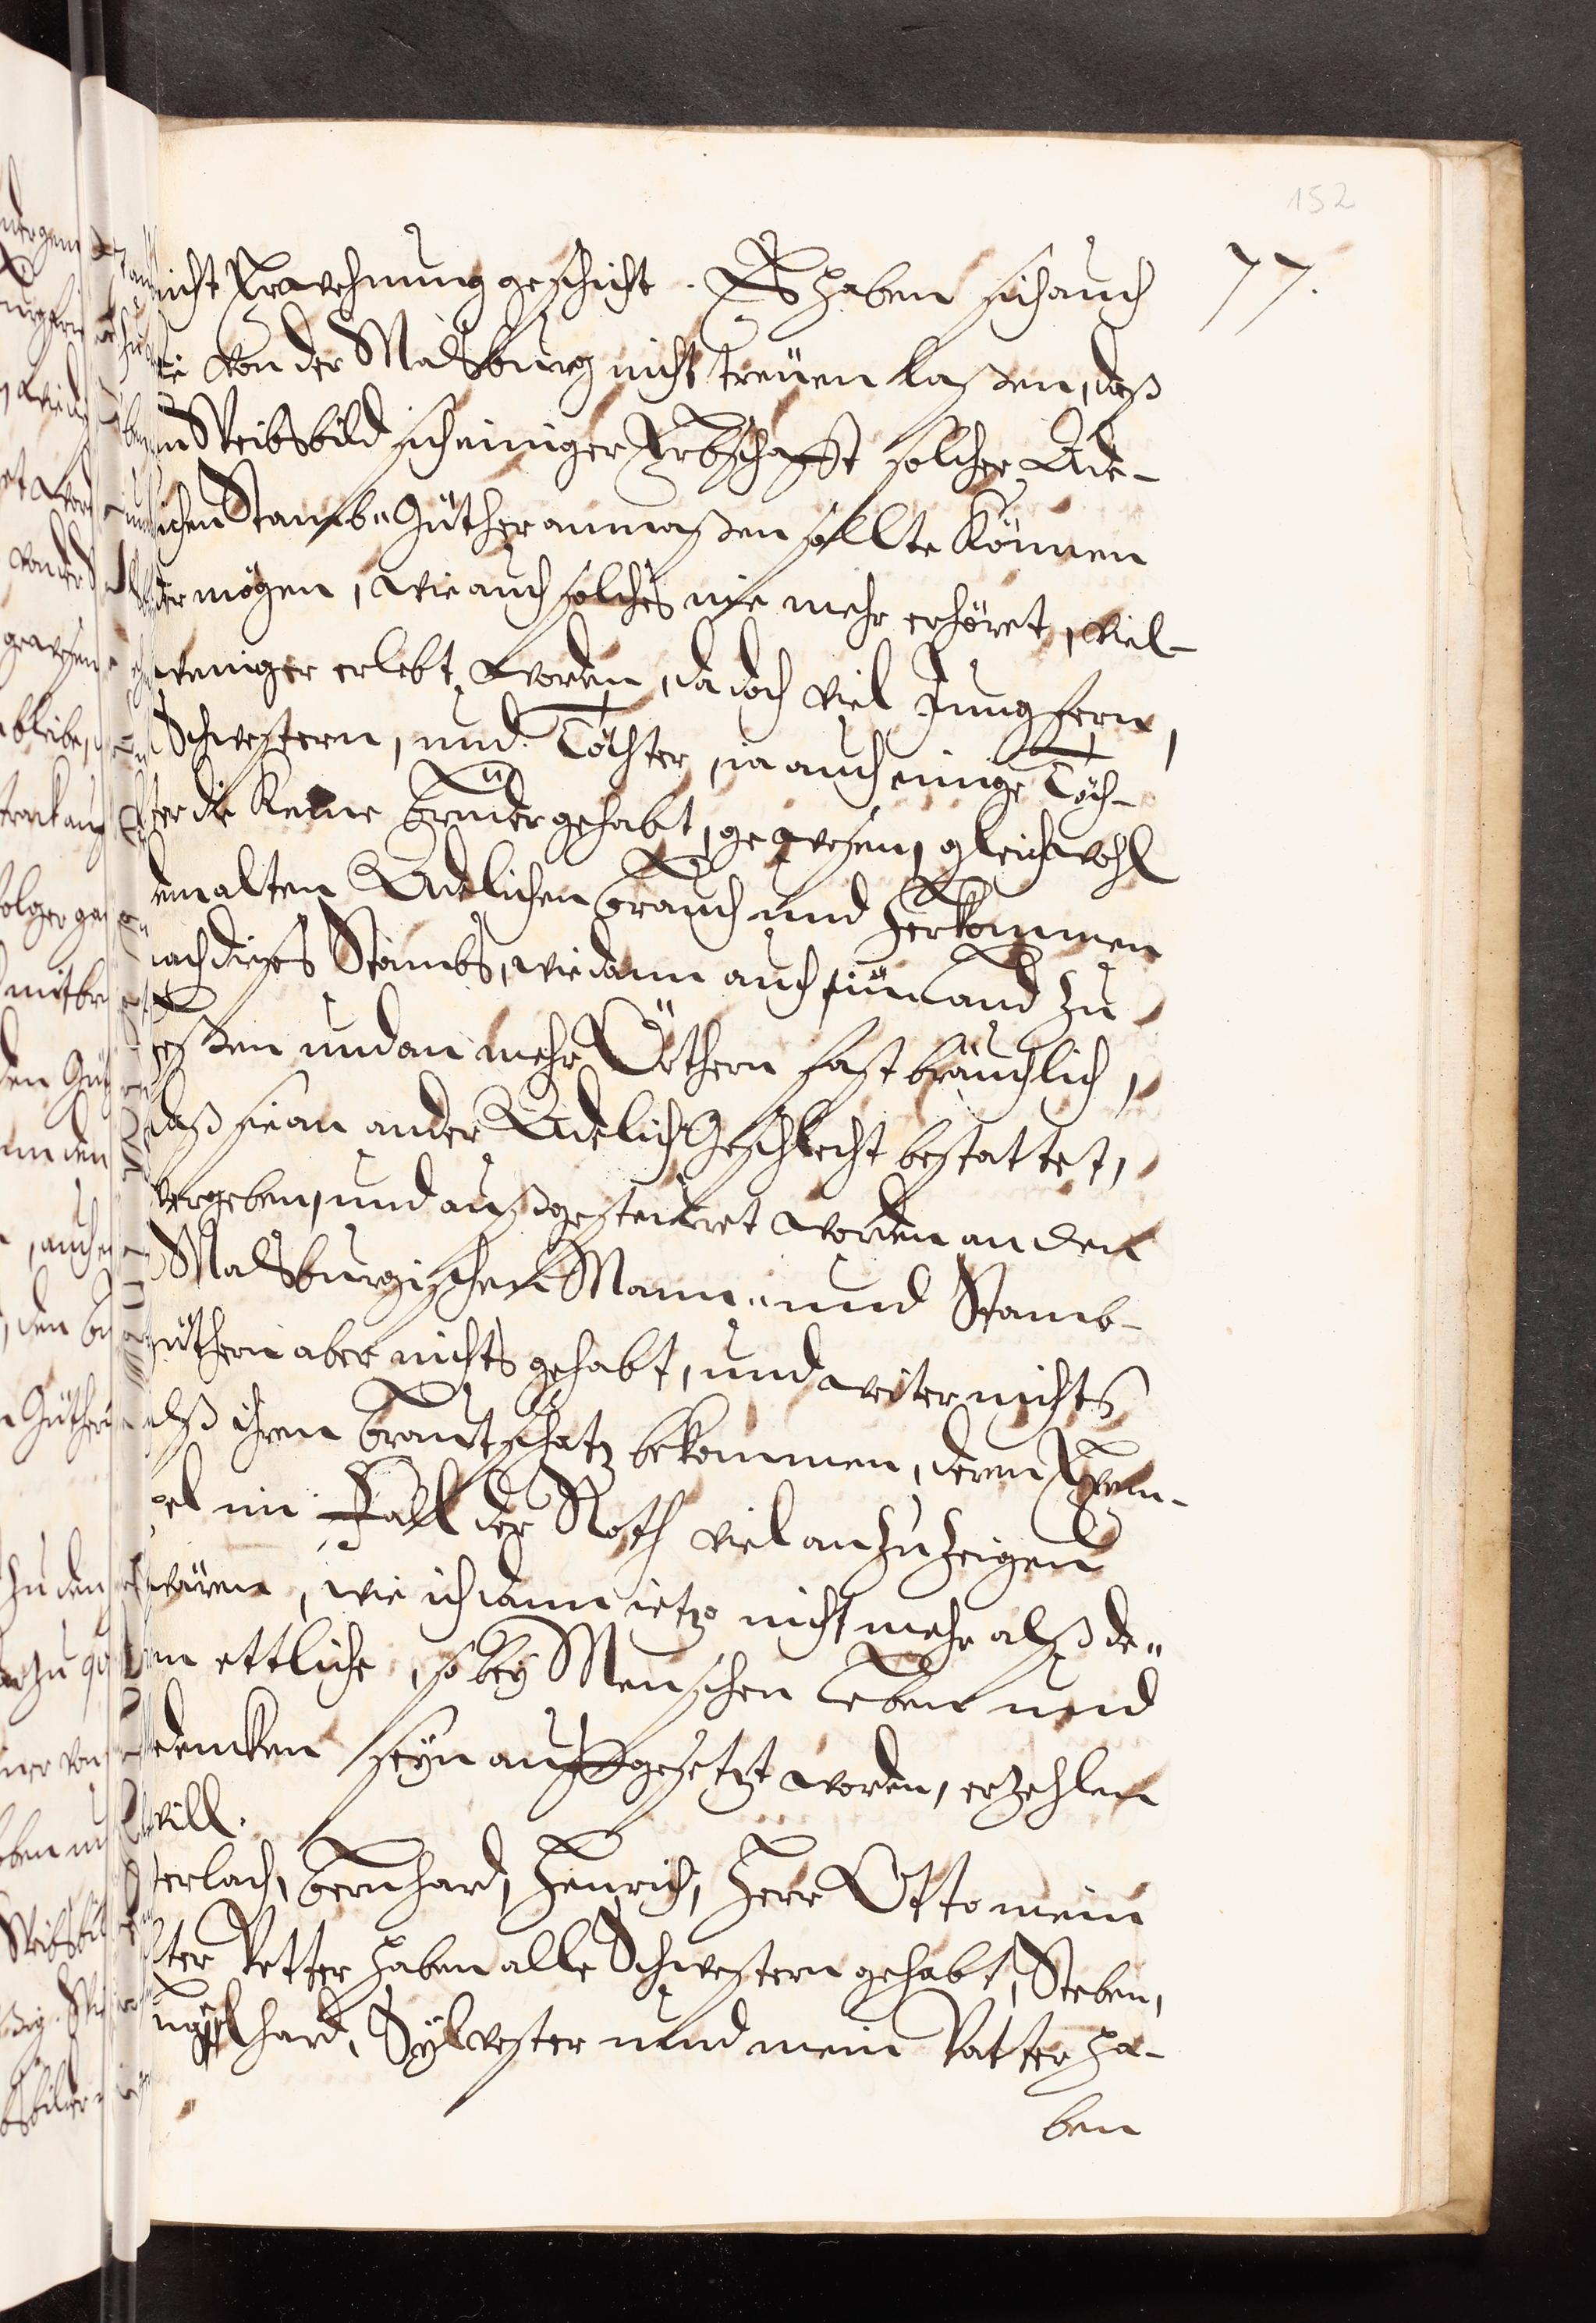 152
77.
nicht Erwehnung geschicht. Es haben sich auch
die von der Malsburg nicht treüen laßen, daß
ein Weibsbild sich einiger Erbschafft solcher Ade-
lichen Stamb- Güther anmaßen sollte können
oder mögen, wie auch solches nie mehr erhöret, viel-
weniger erlebt worden, da doch viel Jungfern,
Schwestern, und Töchter, ja auch einige Töch-
ter die keine Brüder gehabt, gewesen, gleichwohl
dem alten Adelichen Brauch und Herkommen
nach dieses Stambs, wie dann auch im Land zu
Heßen und an mehr Örthern fast bräuchlich,
daß sie an ander Adelich Geschlecht bestattet,
vergeben, und außgesteüret worden an den
Malsburgischen Mann- und Stamb-
güthern aber nichts gehabt, und weiter nichts
alß ihren Brautschatz bekommen, deren Exem-
pel im Fall der Noth viel anzuzeigen
wären, wie ich dann jetzo nicht mehr alß de-
ren ettliche, so bey Menschen Leben und
dencken seyn außgesetzt worden, erzehlen
will.
Gerlach, Bernhard, Henrich, Herr Otto mein
lter Vetter haben alle Schwestern gehabt, Steben,
Engelhard, Sylvester und mein Vatter ha-
ben